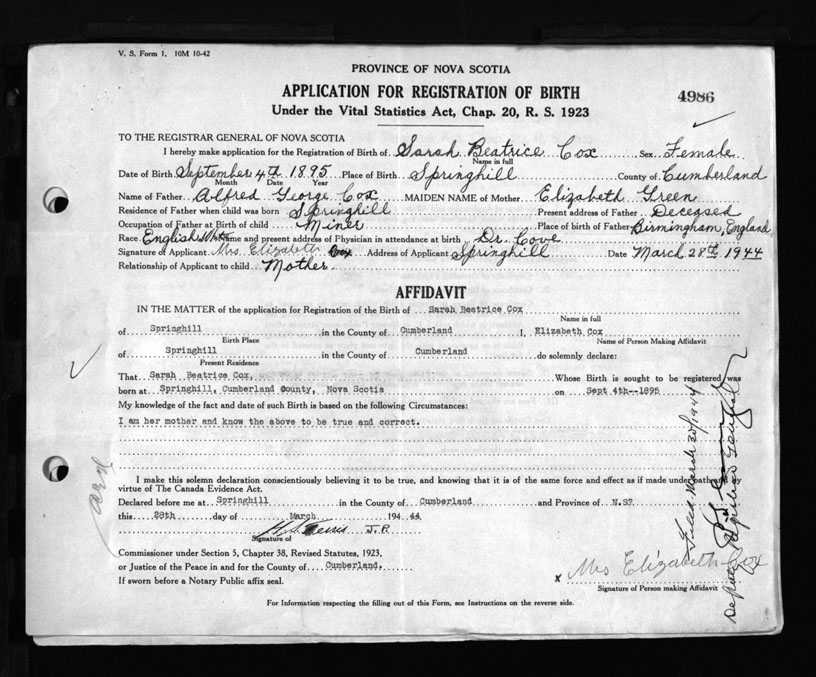 V. S. Form 1. 10M 10-42
PROVINCE OF NOVA SCOTIA
APPLICATION FOR REGISTRATION OF BIRTH
4986
Under the Vital Statistics Act, Chap. 20, R. S. 1923
TO THE REGISTRAR GENERAL OF NOVA SCOTIA
I hereby make application for the Registration of Birth of Sarah Beatrice Cox Sex Female
Name in full
Date of Birth September 4th 1895 Place of Birth Springhill County of Cumberland
Month Date Year
Name of Father Alfred George Cox MAIDEN NAME of Mother Elizabeth Green
Residence of Father when child was born Springhill Present address of Father Deceased
Occupation of Father at Birth of child Miner Place of birth of Father Birmingham, England
Race English White Name and present address of Physician in attendance at birth Dr. Cove
Signature of Applicant Mrs Elizabeth Cox Address of Applicant Springhill Date March 28th 1944
Relationship of Applicant to child Mother
AFFIDAVIT
IN THE MATTER of the application for Registration of the Birth of Sarah Beatrice Cox
Name in full
of Springhill in the County of Cumberland I, Elizabeth Cox
Birth Place Name of Person Making Affidavit
of Springhill in the County of Cumberland do solemnly declare:
Present Residence
That Sarah Beatrice Cox, Whose Birth is sought to be registered was
born at Springhill, Cumberland County, Nova Scotia on Sept 4th--1895
My knowledge of the fact and date of such Birth is based on the following Circumstances:
I am her mother and know the above to be true and correct.
I make this solemn declaration conscientiously believing it to be true, and knowing that it is of the same force and effect as if made under oath and by
virtue of The Canada Evidence Act.
Declared before me at Springhill in the County of Cumberland and Province of N.S?
this 28th day of March 194 44
J.P.
Signature of
Commissioner under Section 5, Chapter 38, Revised Statutes, 1923,
or Justice of the Peace in and for the County of Cumberland.
If sworn before a Notary Public affix seal.
x Mrs Elizabeth Cox
Signature of Person making Affidavit
For Information respecting the filling out of this Form, see Instructions on the reverse side.
Filed March 30/1944
Deputy Registrar General